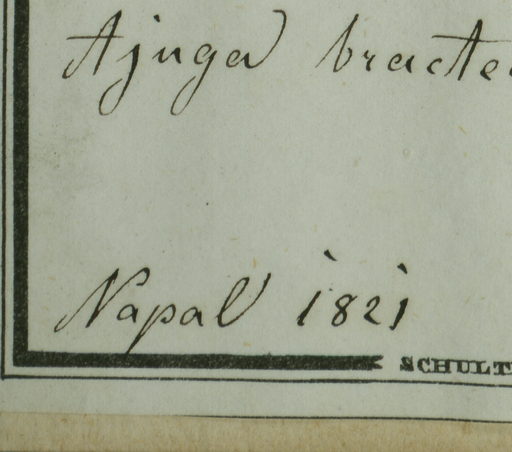 Ajuga bracte
Napal 1821
SCHULT